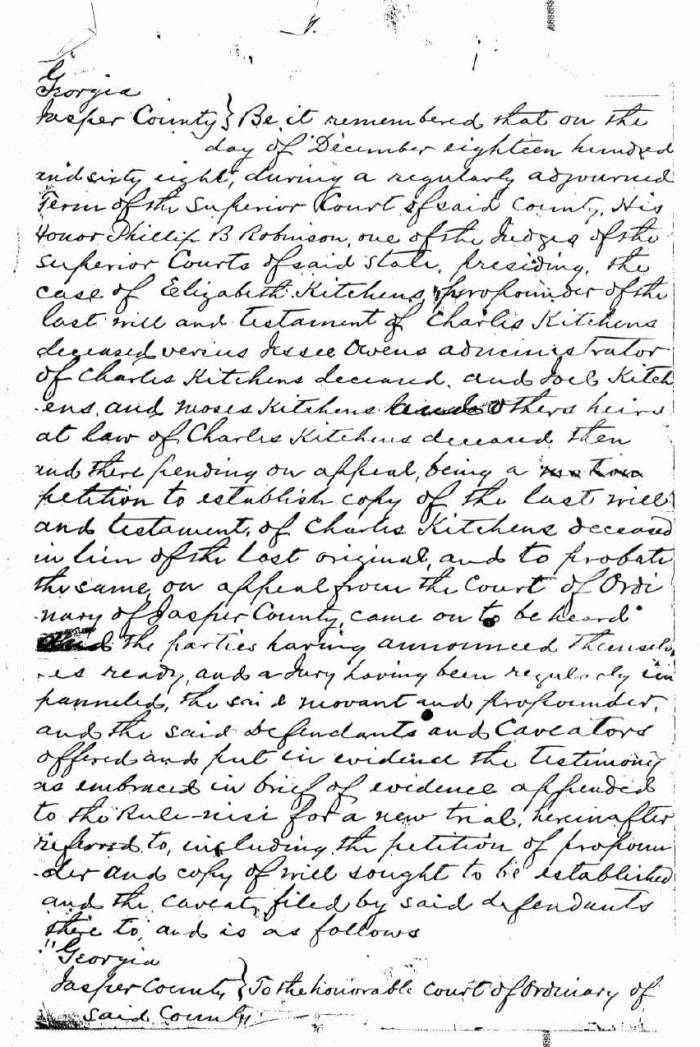 Georgia
Jasper County } Be it remembered that on the
day of December eighteen hundred
and sixty eight, during a regularly adjourned
Term of the Superior Court of said County, His
Honor Phillip B Robinson, one of the Judges of the
Superior Courts of said State, presiding, the
case of Elizabeth Kitchens, propounder of the
last will and testament of Charles Kitchens
deceased versus Jessee Owens administrator
of Charles Kitchens deceased, and Joel Kitch
ens, and Moses Kitchens others heirs
at law of Charles Kitchens deceased then
and there pending on appeal, being a
petition to establish copy of the last will
and testament, of Charles Kitchens deceased
in lieu of the lost original, and to probate
the same, on appeal from the Court of Ordi
nary of Jasper County, came on to be heard
the parties having announced themselv
es ready, and a Jury having been regularly im
panneled, the said movant and propounder,
and the said defendants and Caveators
offered and put in evidence the testimony
as embraced in brief of evidence appended
to the Rule-nisi for a new trial, hereinafter
referred to, including the petition of propoun
der and copy of will sought to be established
and the caveat, filed by said defendants
there to, and is as follows
"Georgia
Jasper County } To the honorable court of Ordinary of
said County